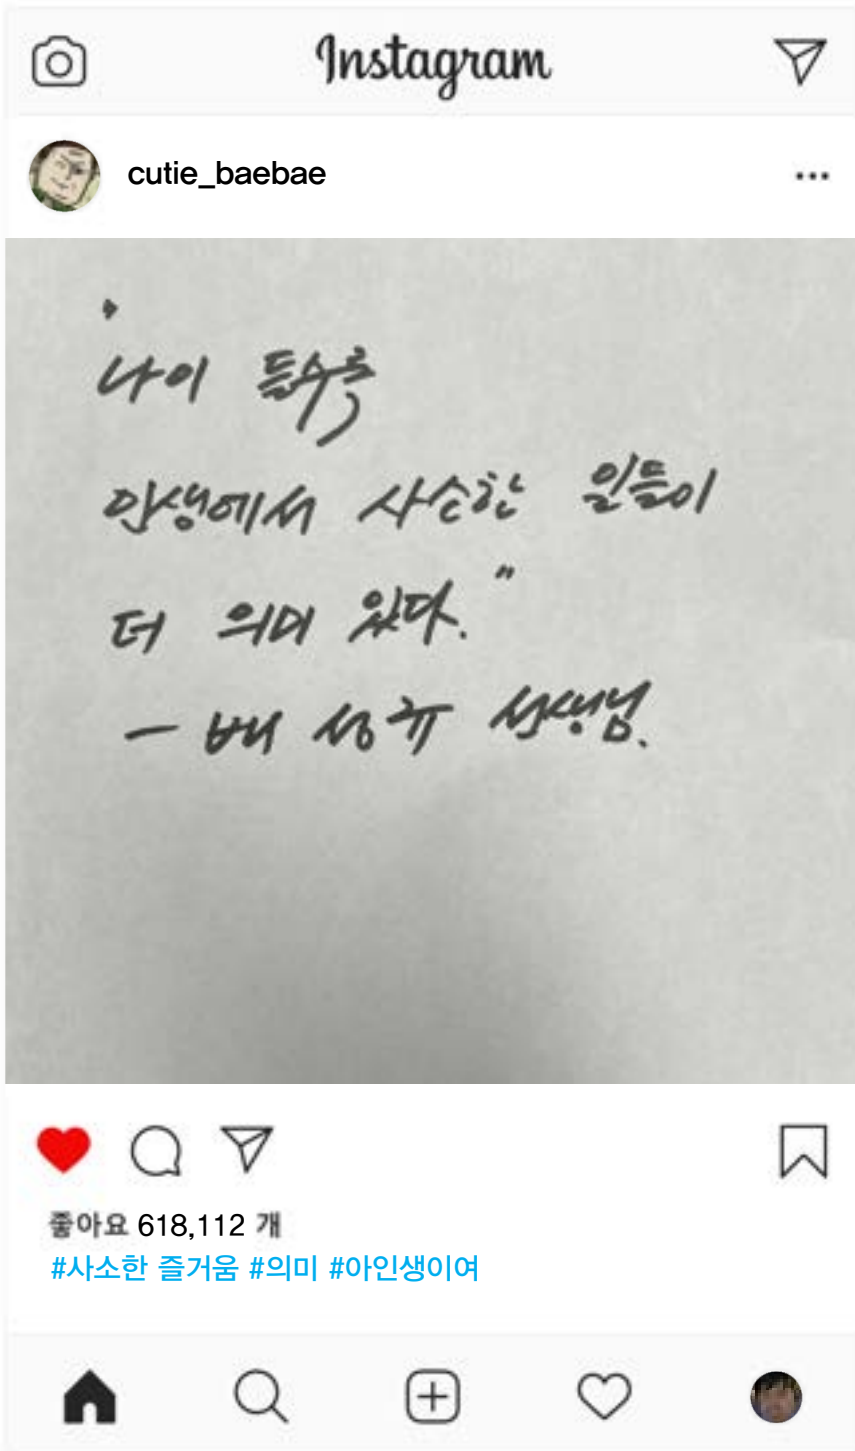 Instagram
cutie_baebae
"
나이 들수록
인생에서 사소한 일들이
더 의미 있다."
- 배성규 선생님.
좋아요 618,112 개
#사소한 즐거움 #의미 #아인생이여